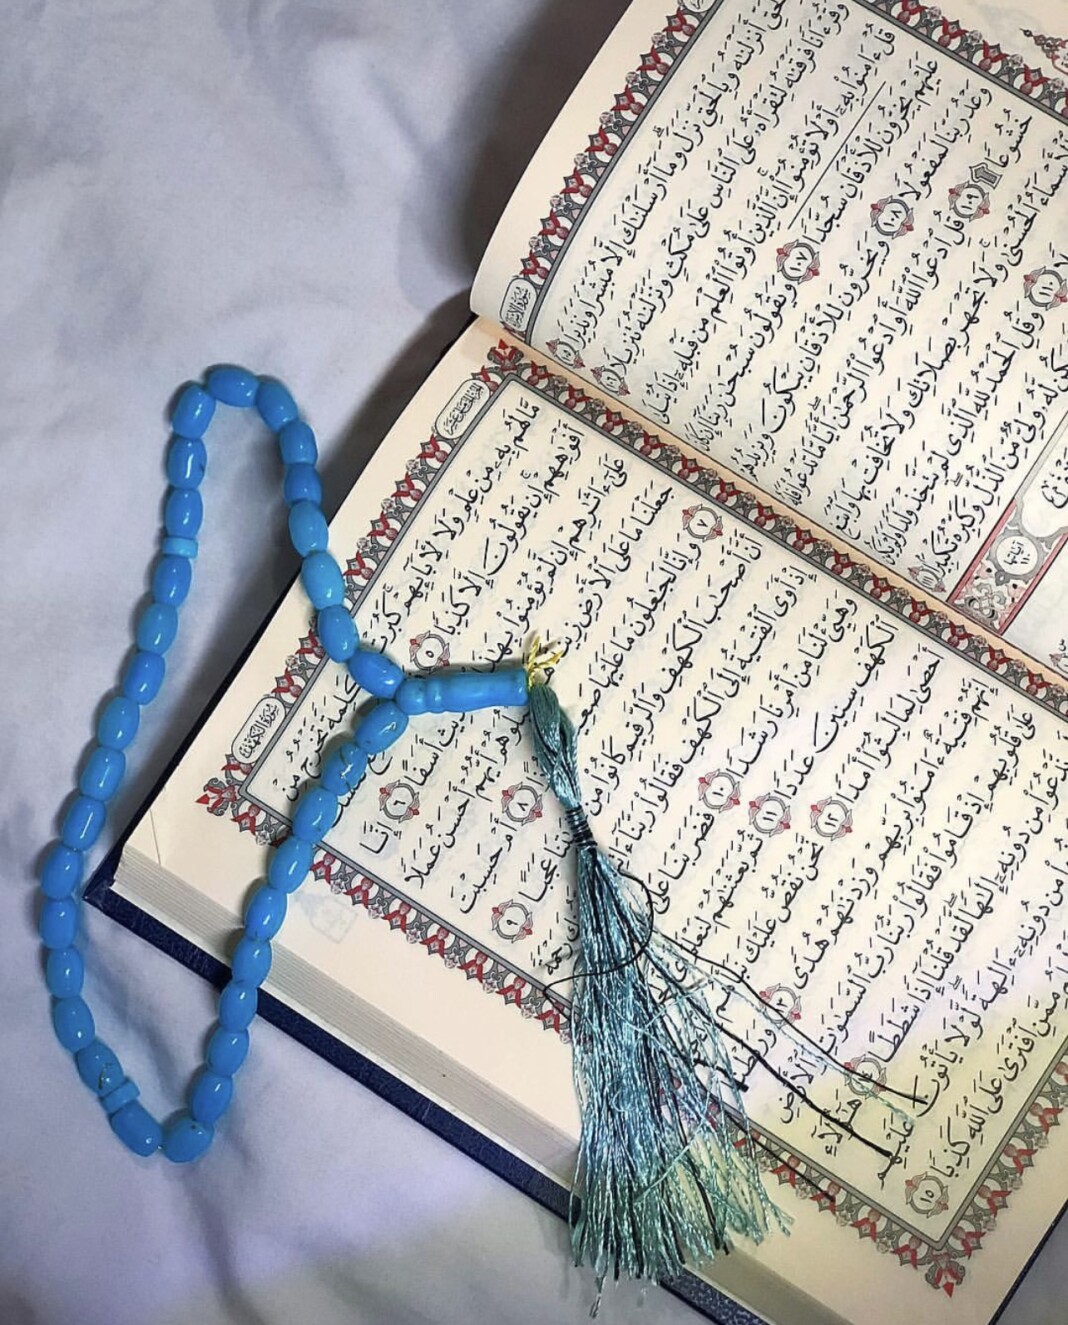 وَبِٱلْحَقِّ أَنزَلْنَٰهُ وَبِٱلْحَقِّ نَزَلَ وَمَآ أَرْسَلْنَٰكَ إِلَّا مُبَشِّرًا وَنَذِيرًا ١٠٥
وَقُرْءَانًا فَرَقْنَٰهُ لِتَقْرَأَهُۥ عَلَى ٱلنَّاسِ عَلَىٰ مُكْثٍ وَنَزَّلْنَٰهُ تَنزِيلًا ١٠٦
قُلْ ءَامِنُوا۟ بِهِۦٓ أَوْ لَا تُؤْمِنُوٓا۟ إِنَّ ٱلَّذِينَ أُوتُوا۟ ٱلْعِلْمَ مِن قَبْلِهِۦٓ إِذَا يُتْلَىٰ
عَلَيْهِمْ يَخِرُّونَ لِلْأَذْقَانِ سُجَّدًا ١٠٧ وَيَقُولُونَ سُبْحَٰنَ رَبِّنَآ إِن كَانَ
وَعْدُ رَبِّنَا لَمَفْعُولًا ١٠٨ وَيَخِرُّونَ لِلْأَذْقَانِ يَبْكُونَ وَيَزِيدُهُمْ
خُشُوعًا ١٠٩ قُلِ ٱدْعُوا۟ ٱللَّهَ أَوِ ٱدْعُوا۟ ٱلرَّحْمَٰنَ أَيًّا مَّا تَدْعُوا۟ فَلَهُ
ٱلْأَسْمَآءُ ٱلْحُسْنَىٰ وَلَا تَجْهَرْ بِصَلَاتِكَ وَلَا تُخَافِتْ بِهَا وَٱبْتَغِ
١١٠ وَقُلِ ٱلْحَمْدُ لِلَّهِ ٱلَّذِى لَمْ يَتَّخِذْ وَلَدًا وَلَمْ يَكُن
لَّهُۥ وَلِىٌّ مِّنَ ٱلذُّلِّ وَكَبِّرْهُ تَكْبِيرًۢا ١١١
سُورَةُ الكَهْفِ
مَّا لَهُم بِهِۦ مِنْ عِلْمٍ وَلَا لِءَابَآئِهِمْ كَبُرَتْ كَلِمَةً تَخْرُجُ مِنْ
أَفْوَٰهِهِمْ إِن يَقُولُونَ إِلَّا كَذِبًا ٥
عَلَىٰٓ ءَاثَٰرِهِمْ إِن لَّمْ يُؤْمِنُوا۟ بِهَٰذَا أَسَفًا ٦ إِنَّا
جَعَلْنَا مَا عَلَى ٱلْأَرْضِ أَيُّهُمْ أَحْسَنُ عَمَلًا
٧ وَإِنَّا لَجَٰعِلُونَ مَا عَلَيْهَا صَعِيدًا ٨ أَمْ حَسِبْتَ
أَنَّ أَصْحَٰبَ ٱلْكَهْفِ وَٱلرَّقِيمِ كَانُوا۟ مِنْ عَجَبًا ٩
إِذْ أَوَى ٱلْفِتْيَةُ إِلَى ٱلْكَهْفِ فَقَالُوا۟ رَبَّنَآ رَحْمَةً
وَهَيِّئْ لَنَا مِنْ أَمْرِنَا رَشَدًا ١٠ فَضَرَبْنَا عَلَىٰٓ
ٱلْكَهْفِ سِنِينَ عَدَدًا ١١ ثُمَّ بَعَثْنَٰهُمْ لِنَعْلَمَ
أَحْصَىٰ لِمَا لَبِثُوٓا۟ أَمَدًا ١٢ نَّحْنُ نَقُصُّ عَلَيْكَ
إِنَّهُمْ فِتْيَةٌ ءَامَنُوا۟ بِرَبِّهِمْ وَزِدْنَٰهُمْ هُدًى ١٣
عَلَىٰ قُلُوبِهِمْ إِذْ قَامُوا۟ فَقَالُوا۟ رَبُّنَا رَبُّ ٱلسَّمَٰوَٰتِ وَٱلْأَرْضِ
نَّدْعُوَا۟ مِن دُونِهِۦٓ إِلَٰهًا لَّقَدْ قُلْنَآ إِذًا شَطَطًا ١٤ هَٰٓؤُلَآءِ
مِن دُونِهِۦٓ ءَالِهَةً لَّوْلَا يَأْتُونَ عَلَيْهِم
مِمَّنِ ٱفْتَرَىٰ عَلَى ٱللَّهِ كَذِبًا ١٥